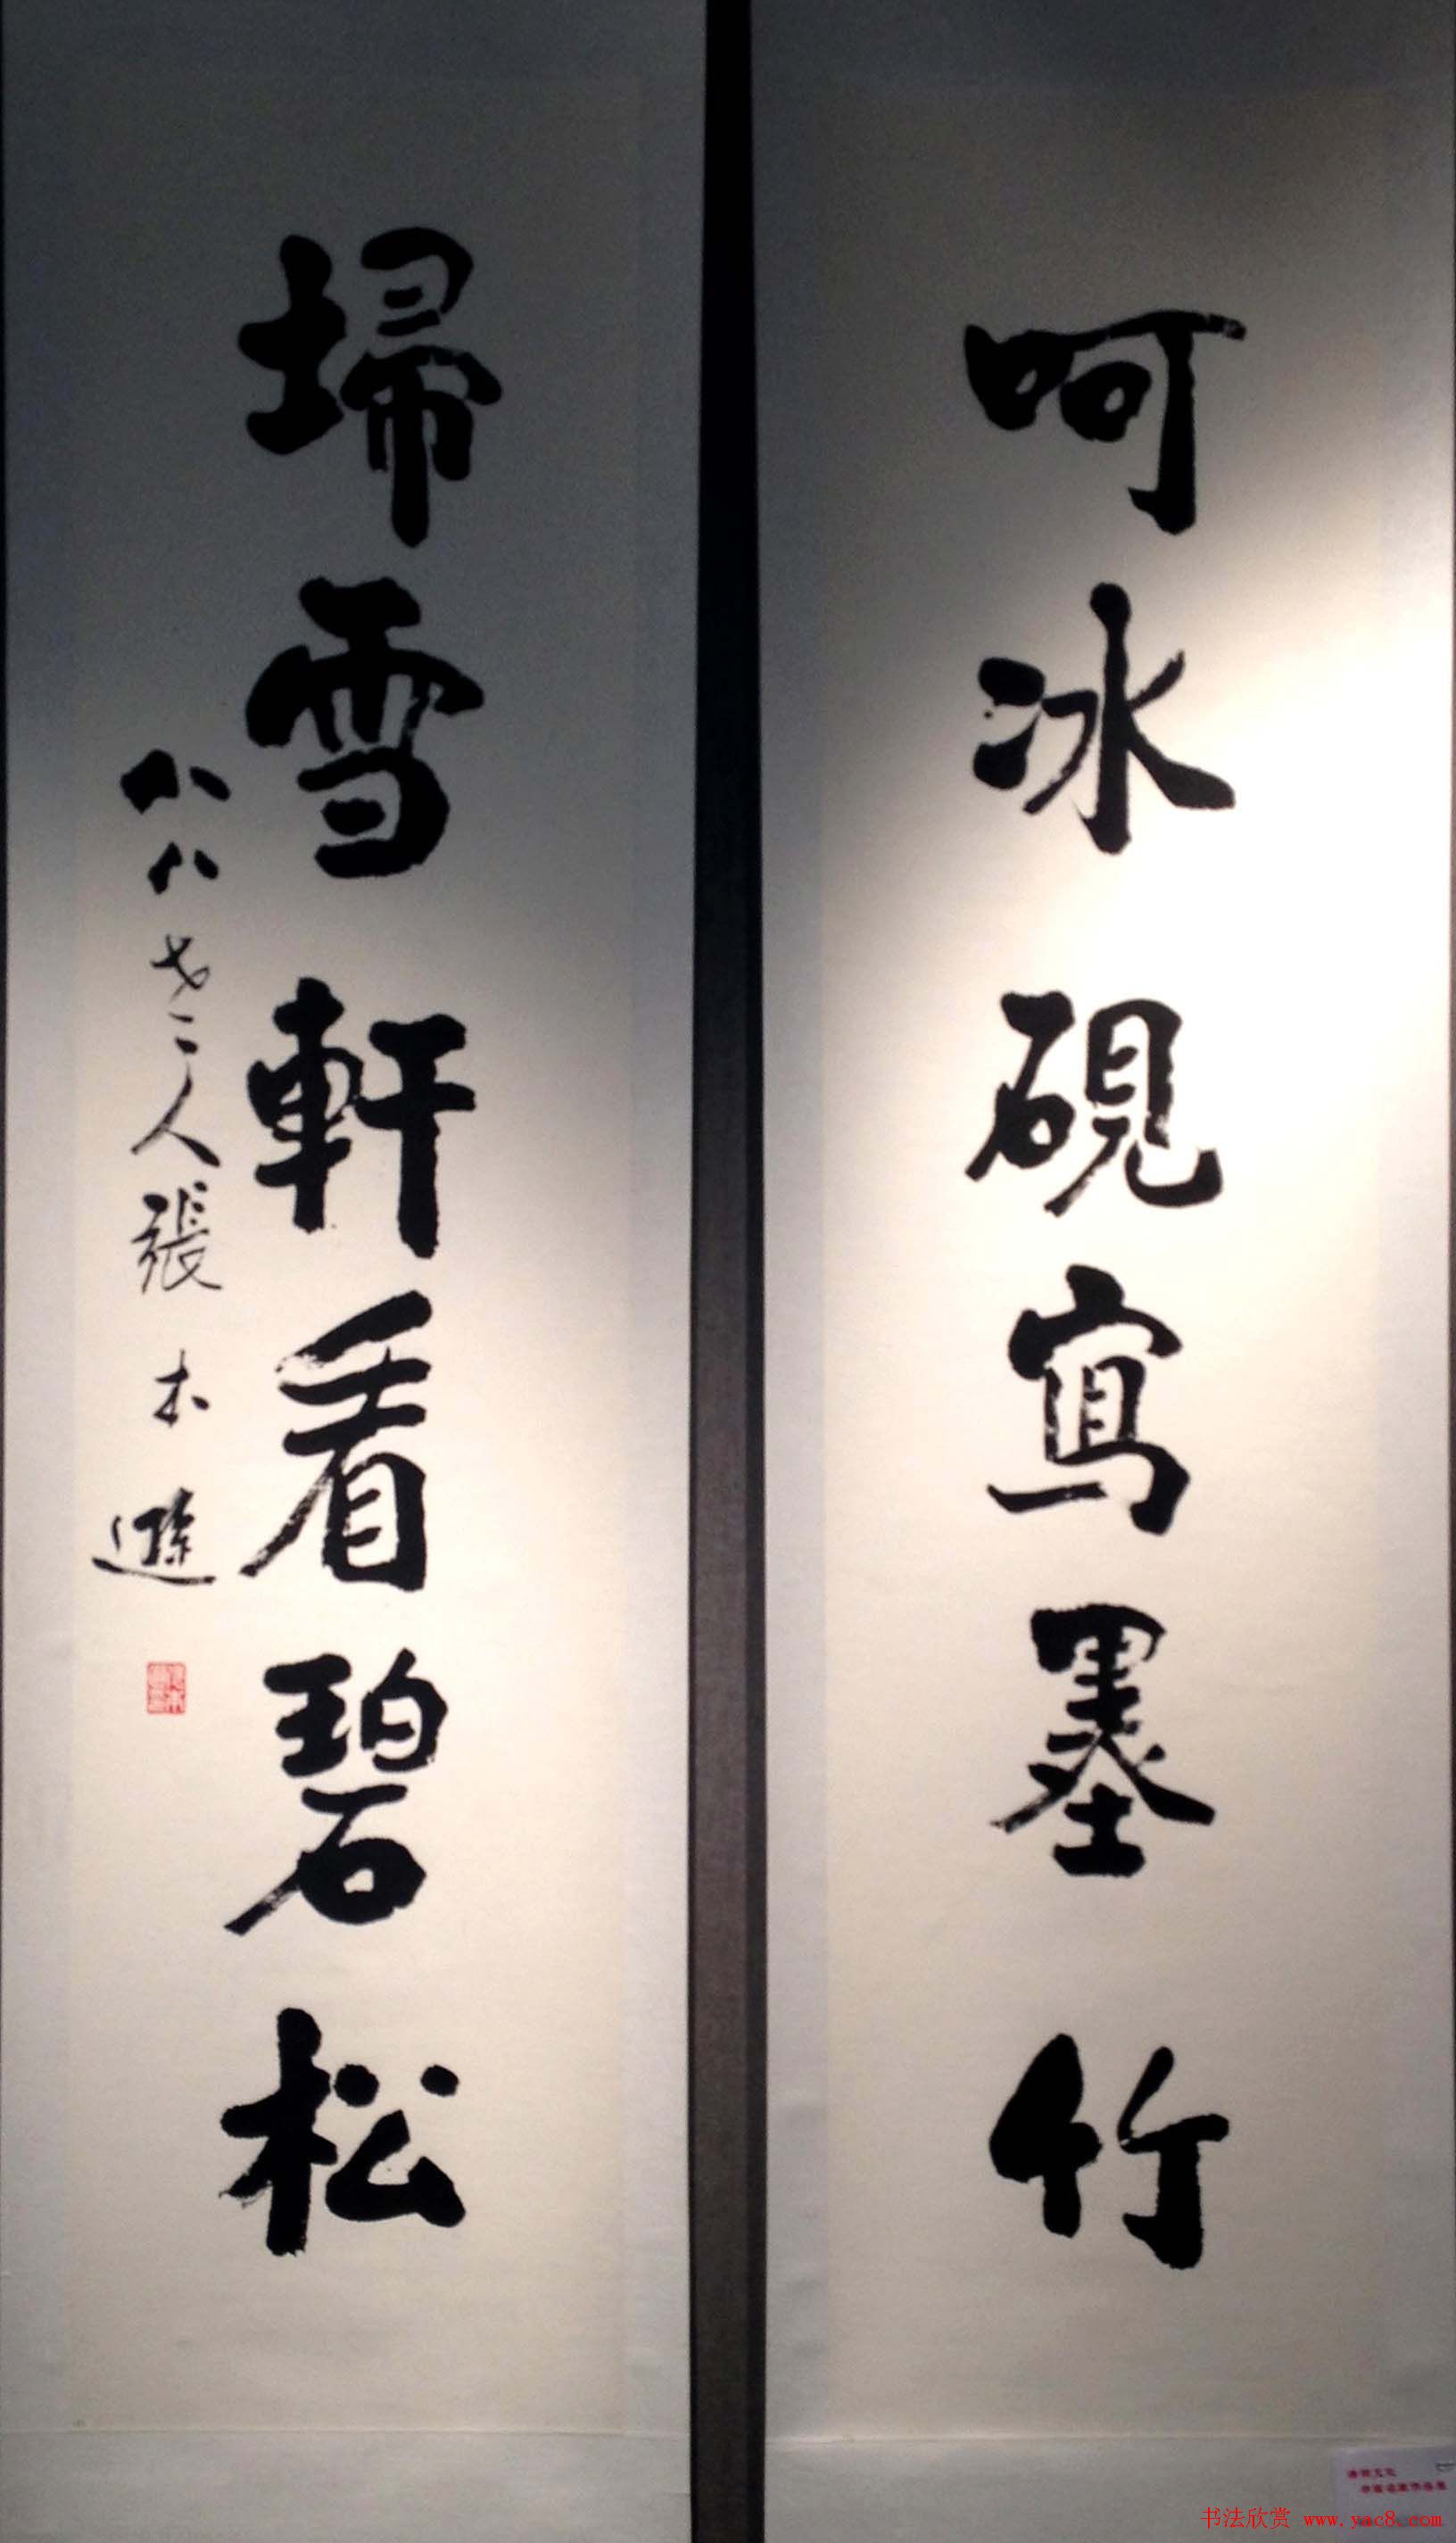 呵冰硯寫墨竹
埽雪軒看碧松
八八老人張本遜
书法欣赏 www.yac8.com